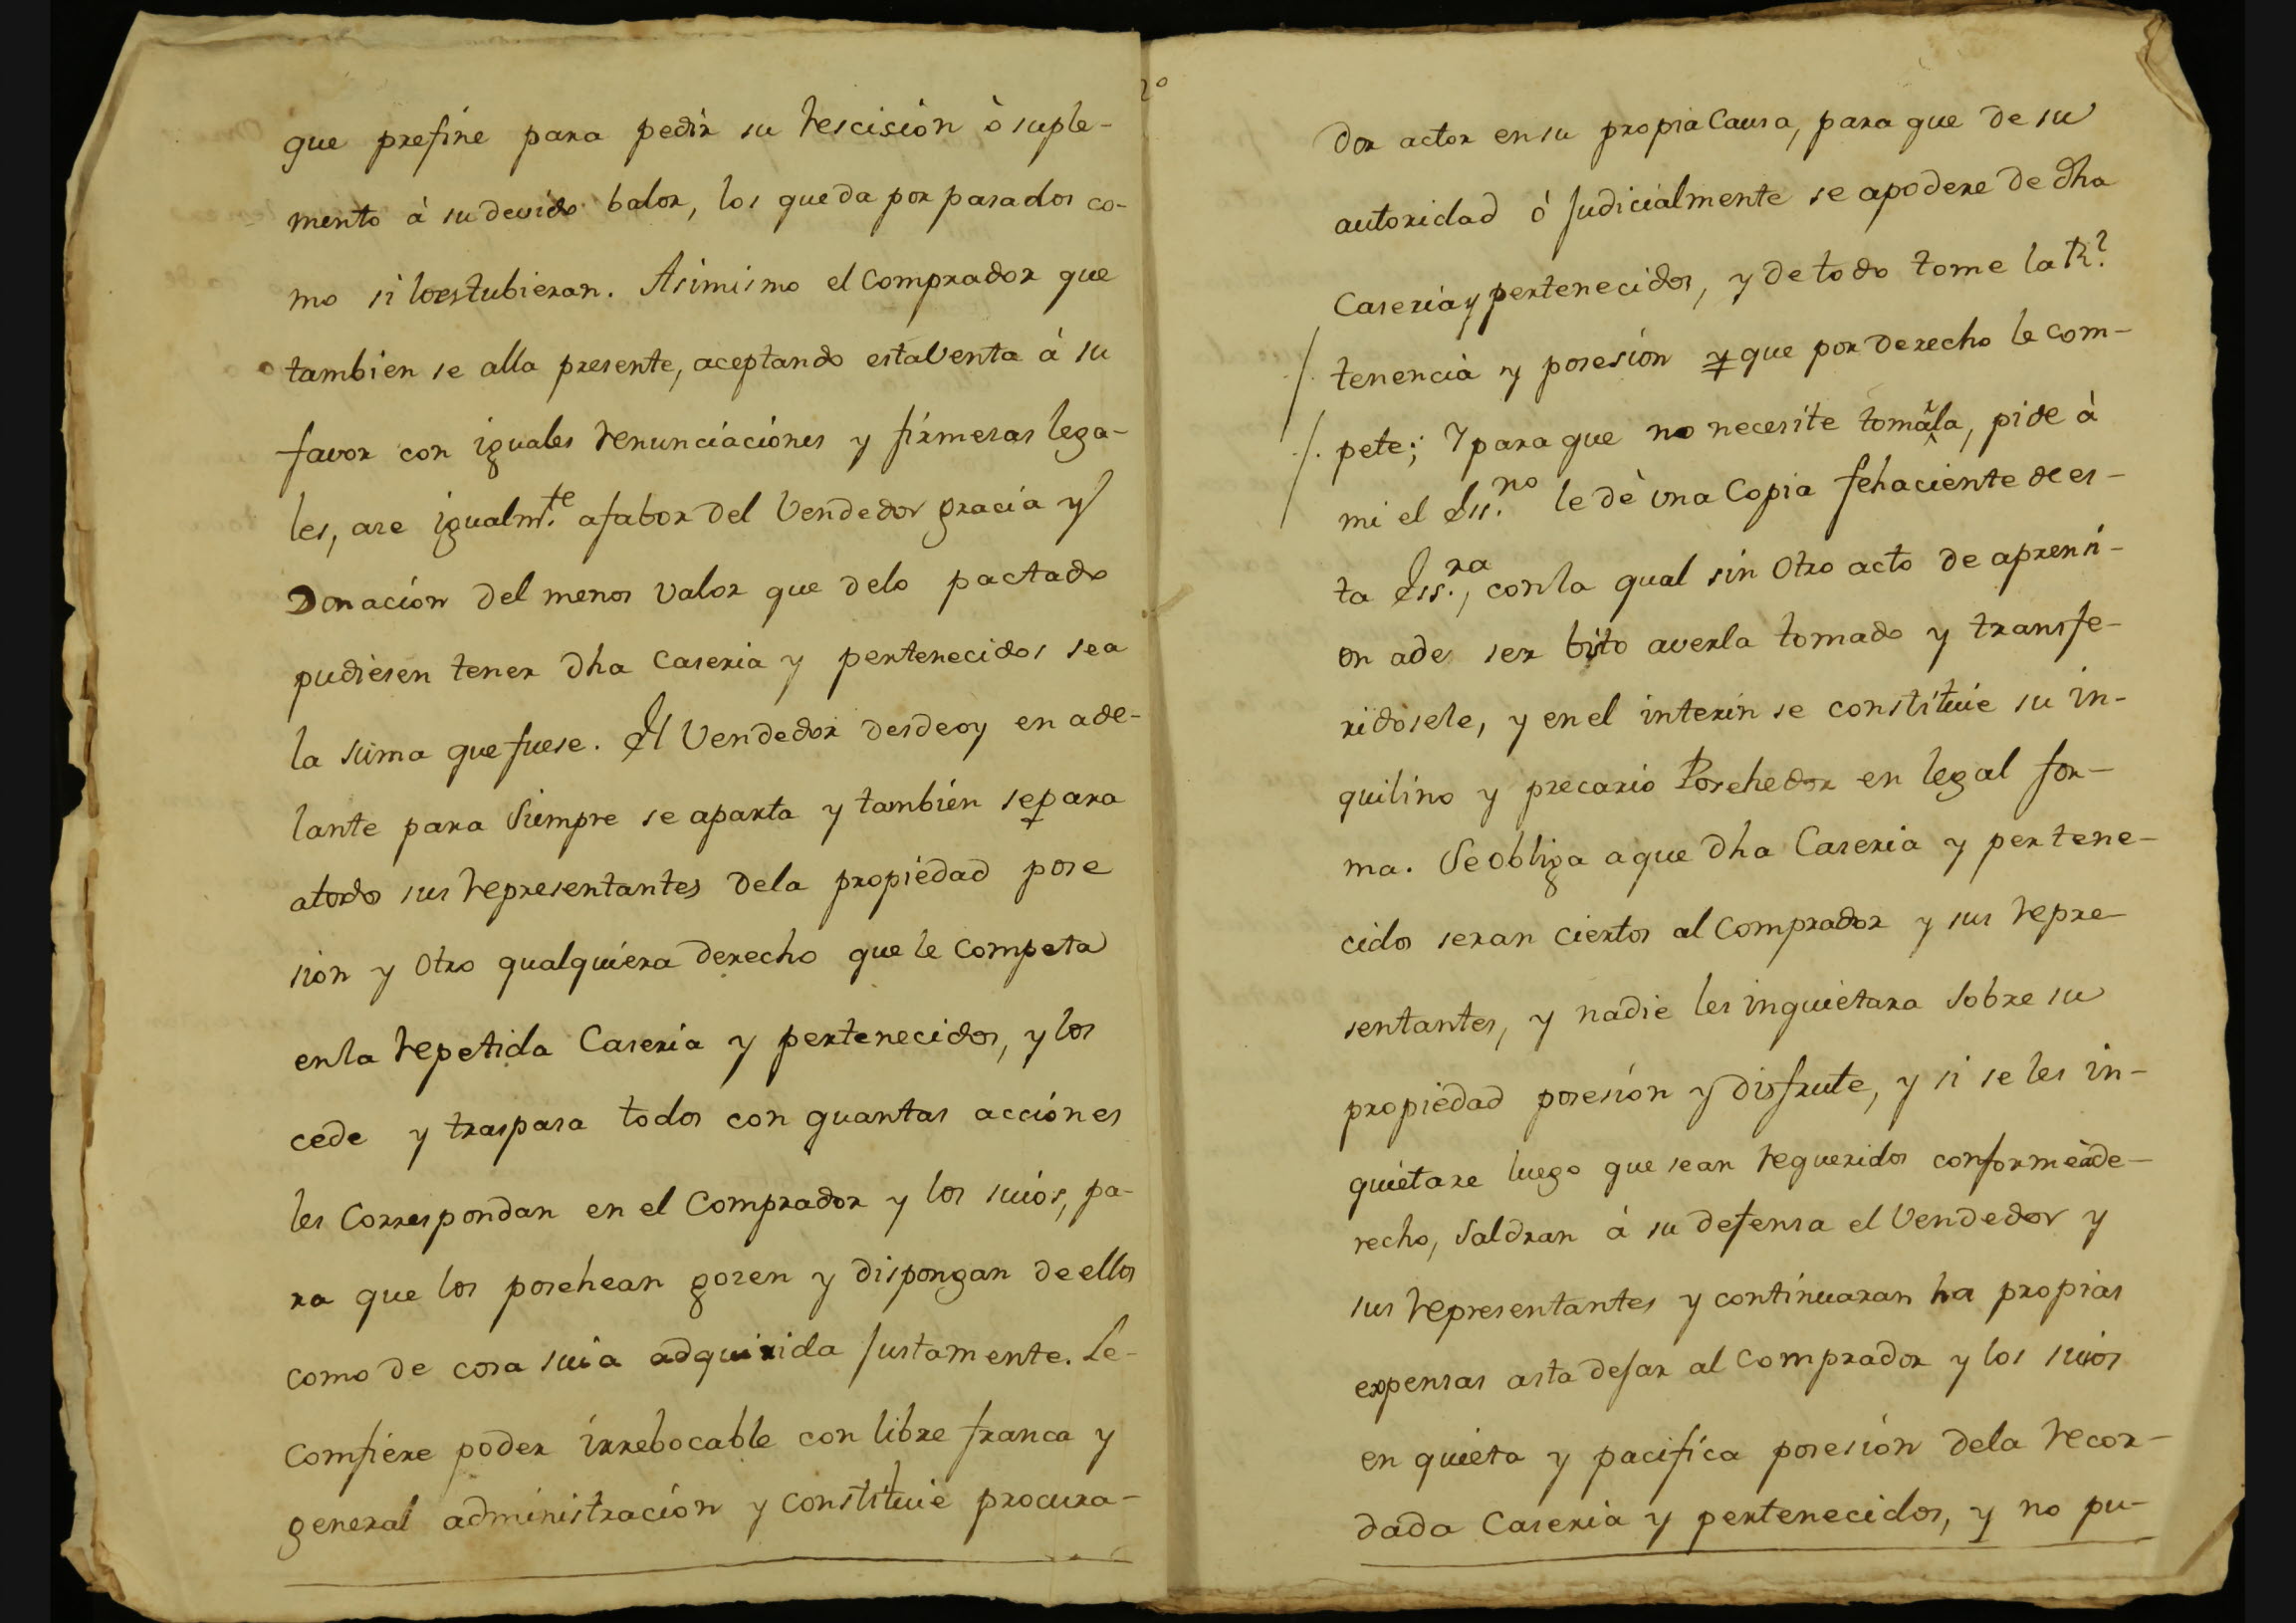 que prefine para pedir su rescisión ò suple-
mento à su devido balor, los que da por pasados co-
mo si lo estubieran. Asimismo el Comprador que
tambien se alla presente, aceptando esta Venta à su
favor con iguales renunciaciones y firmesas lega-
les, ase igualm.te a fabor del Vendedor gracia y
Donación del menos Valor que de lo pactado
pudiesen tener dha Caseria y pertenecidos sea
la suma que fuese. El Vendedor desde oy en ade-
lante para Siempre se aparta y también separa
a todos sus representantes de la propiedad pose
sion y Otro qualquiera derecho que le Competa
en la repetida Caseria y pertenecidos, y los
cede y traspasa todos con quantas acciónes
les Correspondan en el Comprador y los suios, pa-
ra que los posehean gosen y dispongan de ellos
como de cosa suia adquirida justamente. Le-
Comfiere poder irrebocable con libre franca y
general administración y Constituie procura-
dor actor en su propia Causa, para que de su
autoridad ò judicialmente se apodere de dha
Caseria y pertenecidos, y de todo tome la R.l
tenencia y posesión y que por derecho le com-
pete; Y para que no necesite tomarla, pide à
mi el Ess.no le dè una Copia fehaciente de es-
ta Ess.ra, con la qual sin Otro acto de aprensi-
on a de ser bisto averla tomado y transfe-
ridosele, y en el interin se constituie su in-
quilino y precario Posehedor en legal for-
ma. Se Obliga a que dha Caseria y pertene-
cidos seran ciertos al Comprador y sus repre-
sentantes, y nadie les inquietara Sobre su
propiedad posesión y disfrute, y si se les in-
quietare luego que sean requeridos conforme à de-
recho, Saldran à su defensa el Vendedor y
sus representantes y continuaran ha propias
expensas asta dejar al Comprador y los suios
en quieta y pacifica posesión de la recor-
dada Caseria y pertenecidos, y no pu-